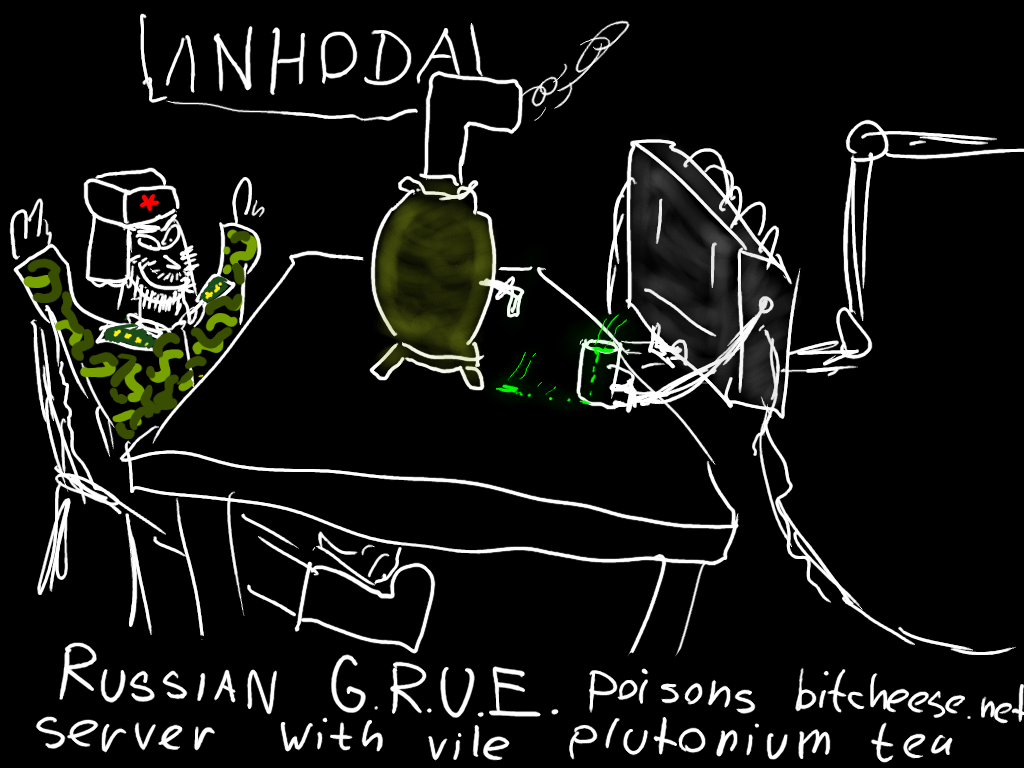 ЛИНОДА
RUSSIAN G.R.U.E. poisons bitcheese.net
server with vile plutonium tea